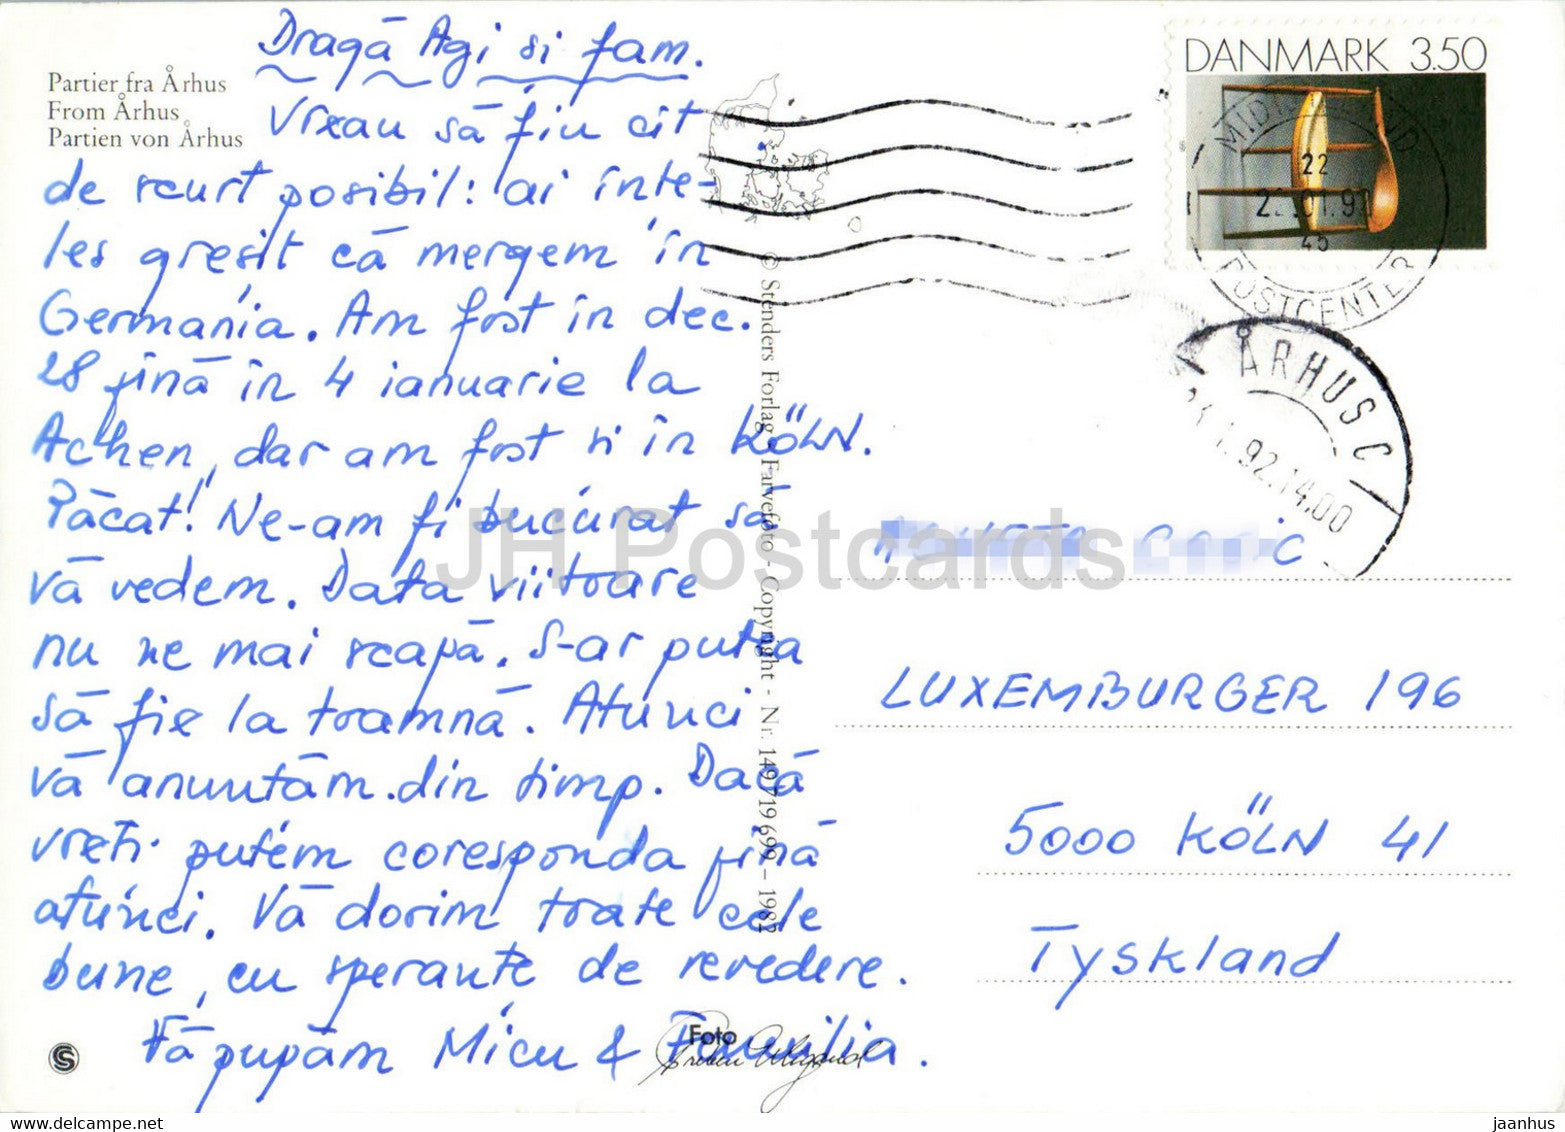 Partier fra Århus
From Århus
Partien von Århus
Dragă Agi si fam.
Vreau să fiu cit
de scurt posibil: ai înte-
les gresit că mergem în
Germania. Am fost în dec.
28 fină în 4 ianuarie la
Achen, dar am fost si în KÖLN.
Păcat! Ne-am fi bucurat să
vă vedem. Data viitoare
nu ne mai scapă. S-ar putea
să fie la toamnă. Atunci
vă anuntăm din timp. Dacă
vreti putem coresponda fină
atunci. Vă dorim toate cele
bune, cu sperante de revedere.
Vă pupăm Micu & Familia.
DANMARK 3.50
22
45
POSTCENTER
ÅRHUS C
1.92.14.00
© Stenders Forlag Farvefoto - Copyright - Nr. 149719699 - 1982
JH Postcards
LUXEMBURGER 196
5000 KÖLN 41
Tyskland
Foto
S
www.delcampe.net
jaanhus